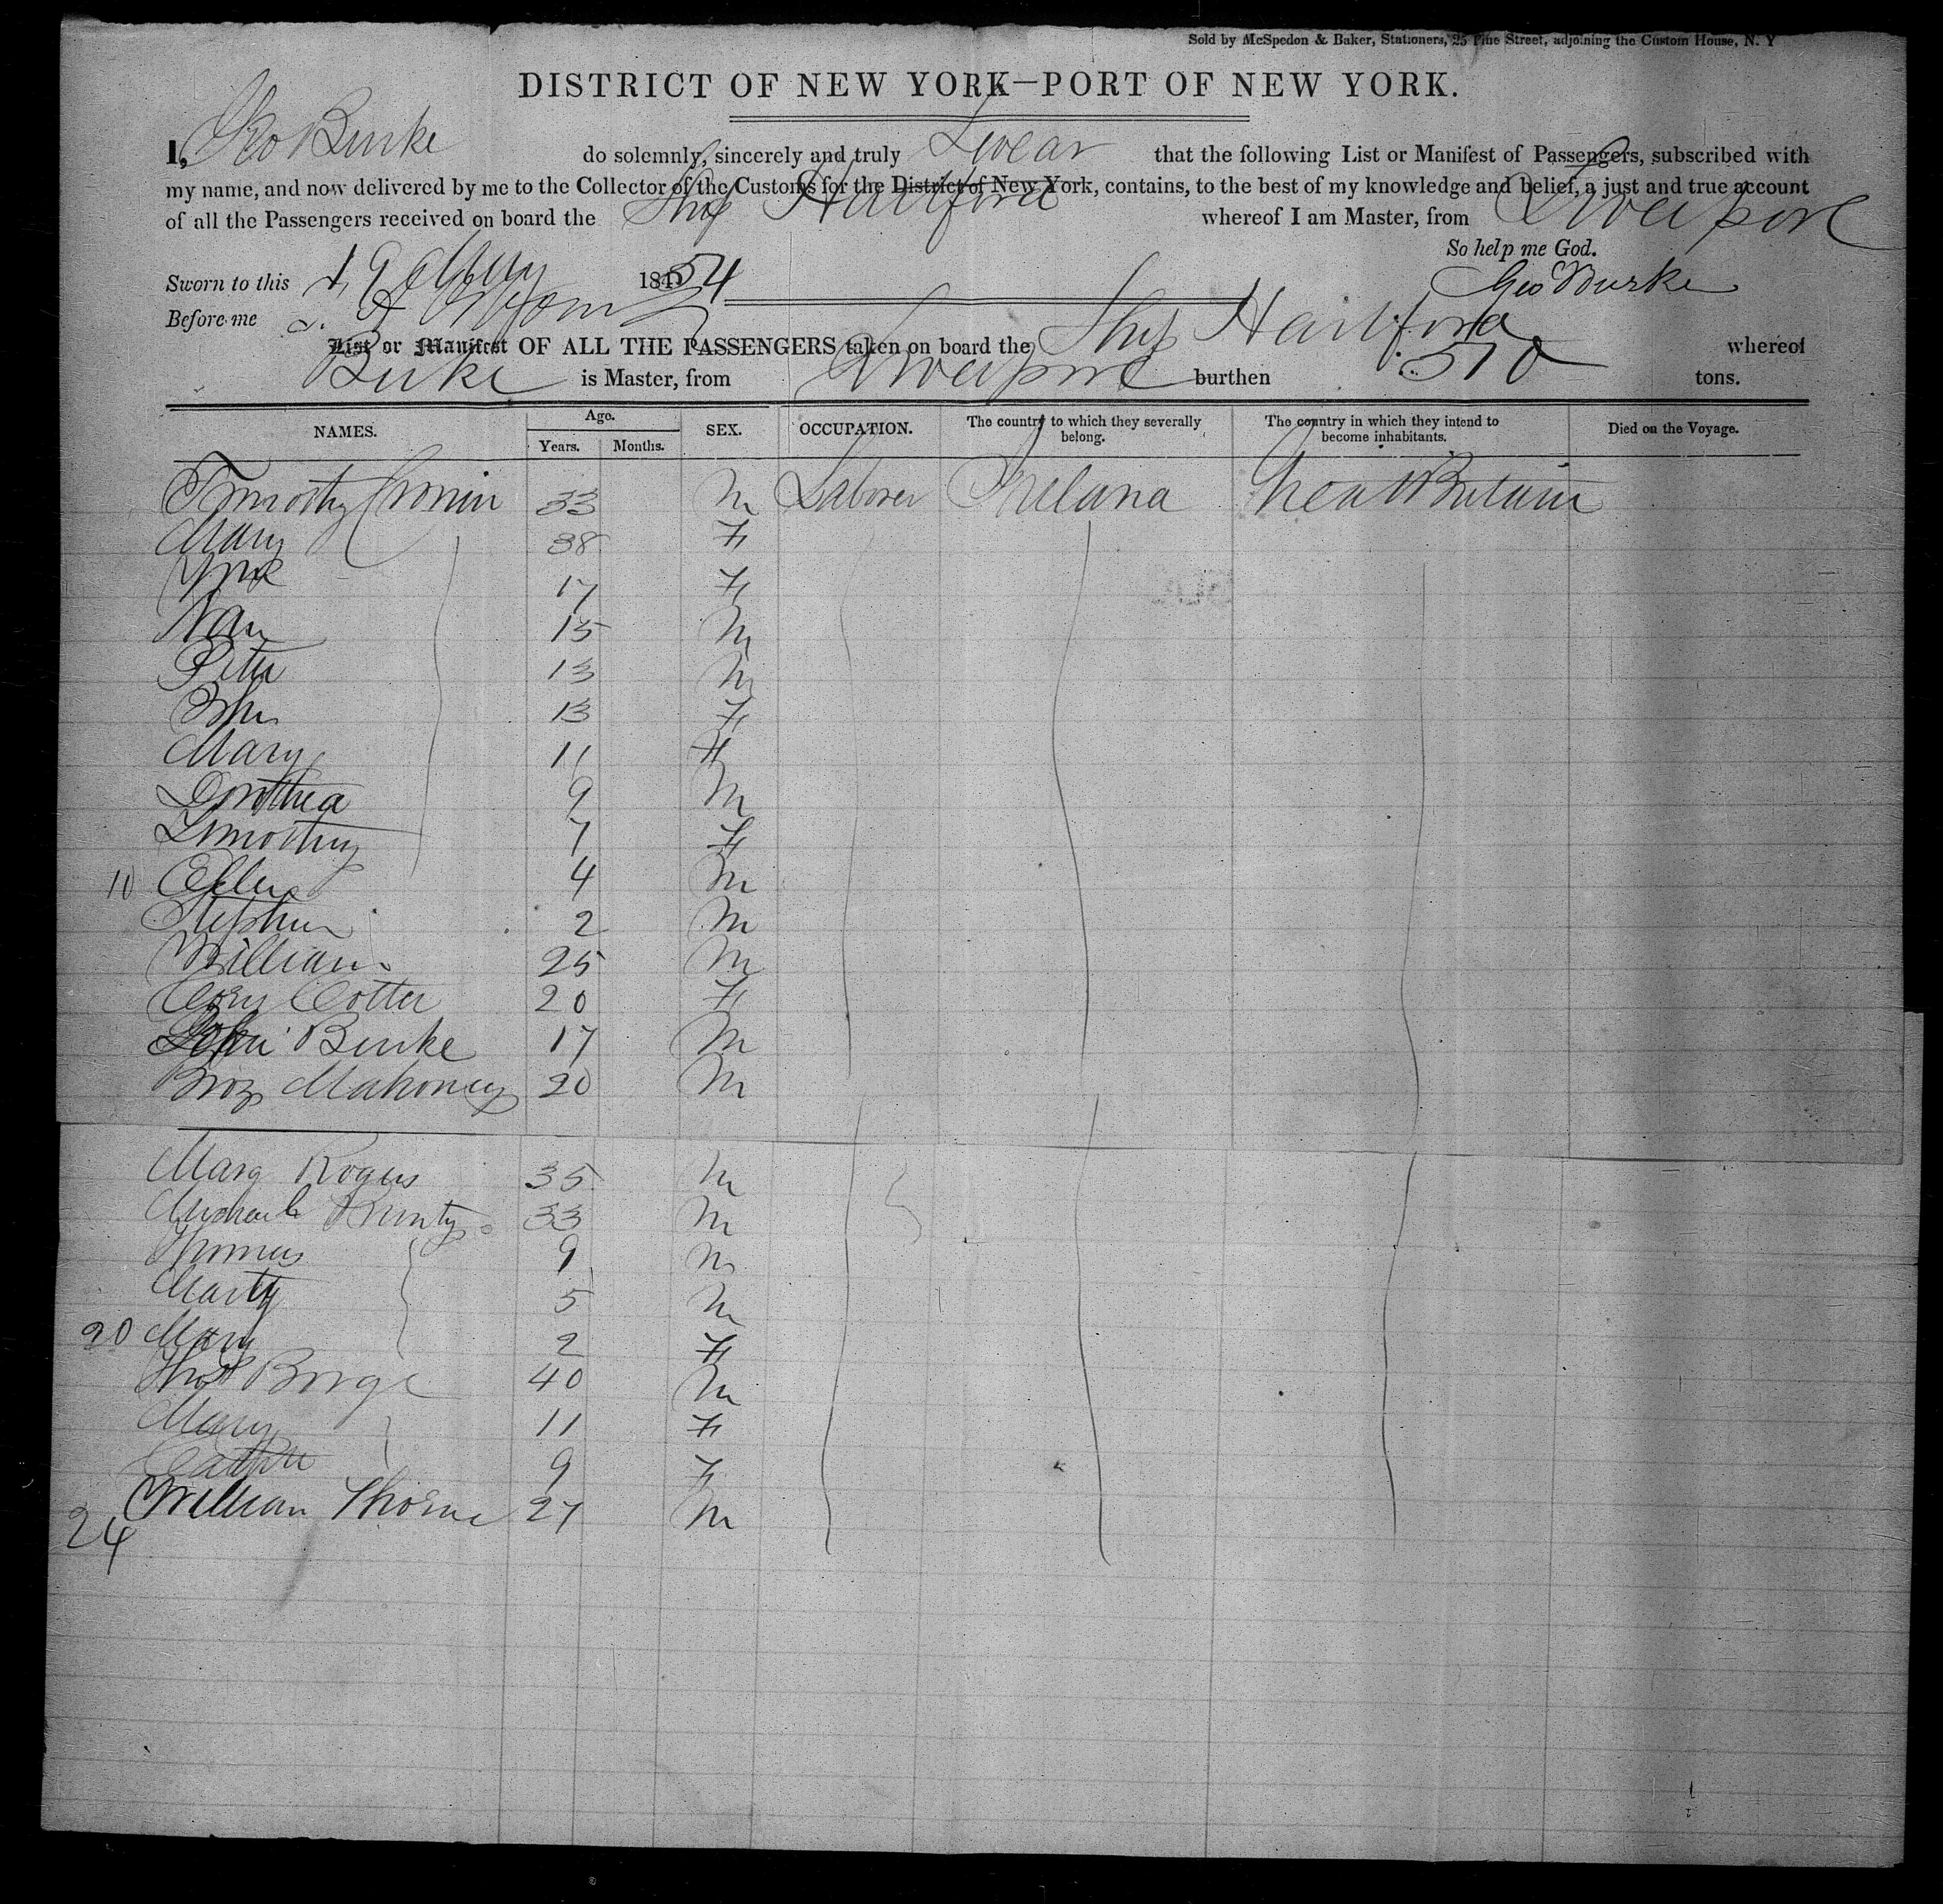 Sold by McSpedon & Baker, Stationers, 25 Pine Street, adjoining the Custom House, N. Y
DISTRICT OF NEW YORK—PORT OF NEW YORK.
I, Geo Burke do solemnly, sincerely and truly Swear that the following List or Manifest of Passengers, subscribed with
my name, and now delivered by me to the Collector of the Customs for the District of New York, contains, to the best of my knowledge and belief, a just and true account
of all the Passengers received on board the Ship Hartford whereof I am Master, from Liverpool
So help me God.
Sworn to this 19 1854 Geo Burke
Before me
List or Manifest OF ALL THE PASSENGERS taken on board the Ship Hartford whereof
Burke is Master, from Liverpool burthen 510 tons.
NAMES. Age. Years. Months. SEX. OCCUPATION. The country to which they severally belong. The country in which they intend to become inhabitants. Died on the Voyage.
Timothy Cronin 33 M Laborer Ireland Great Britain
Mary 38 F
17 F
15 M
Peter 13 M
13 F
Mary 11 F
Dorothea 9 M
Timothy 7 F
10 Ellen 4 M
Stephen 2 M
William 25 M
Cotter 20 F
John Burke 17 M
Mahoney 20 M
Marg Rogers 35 M
Michael 33 M
Thomas 9 M
Marty 5 M
20 Mary 2 F
Thos 40 M
Mary 11 F
9 F
William Thorne 27 M
24